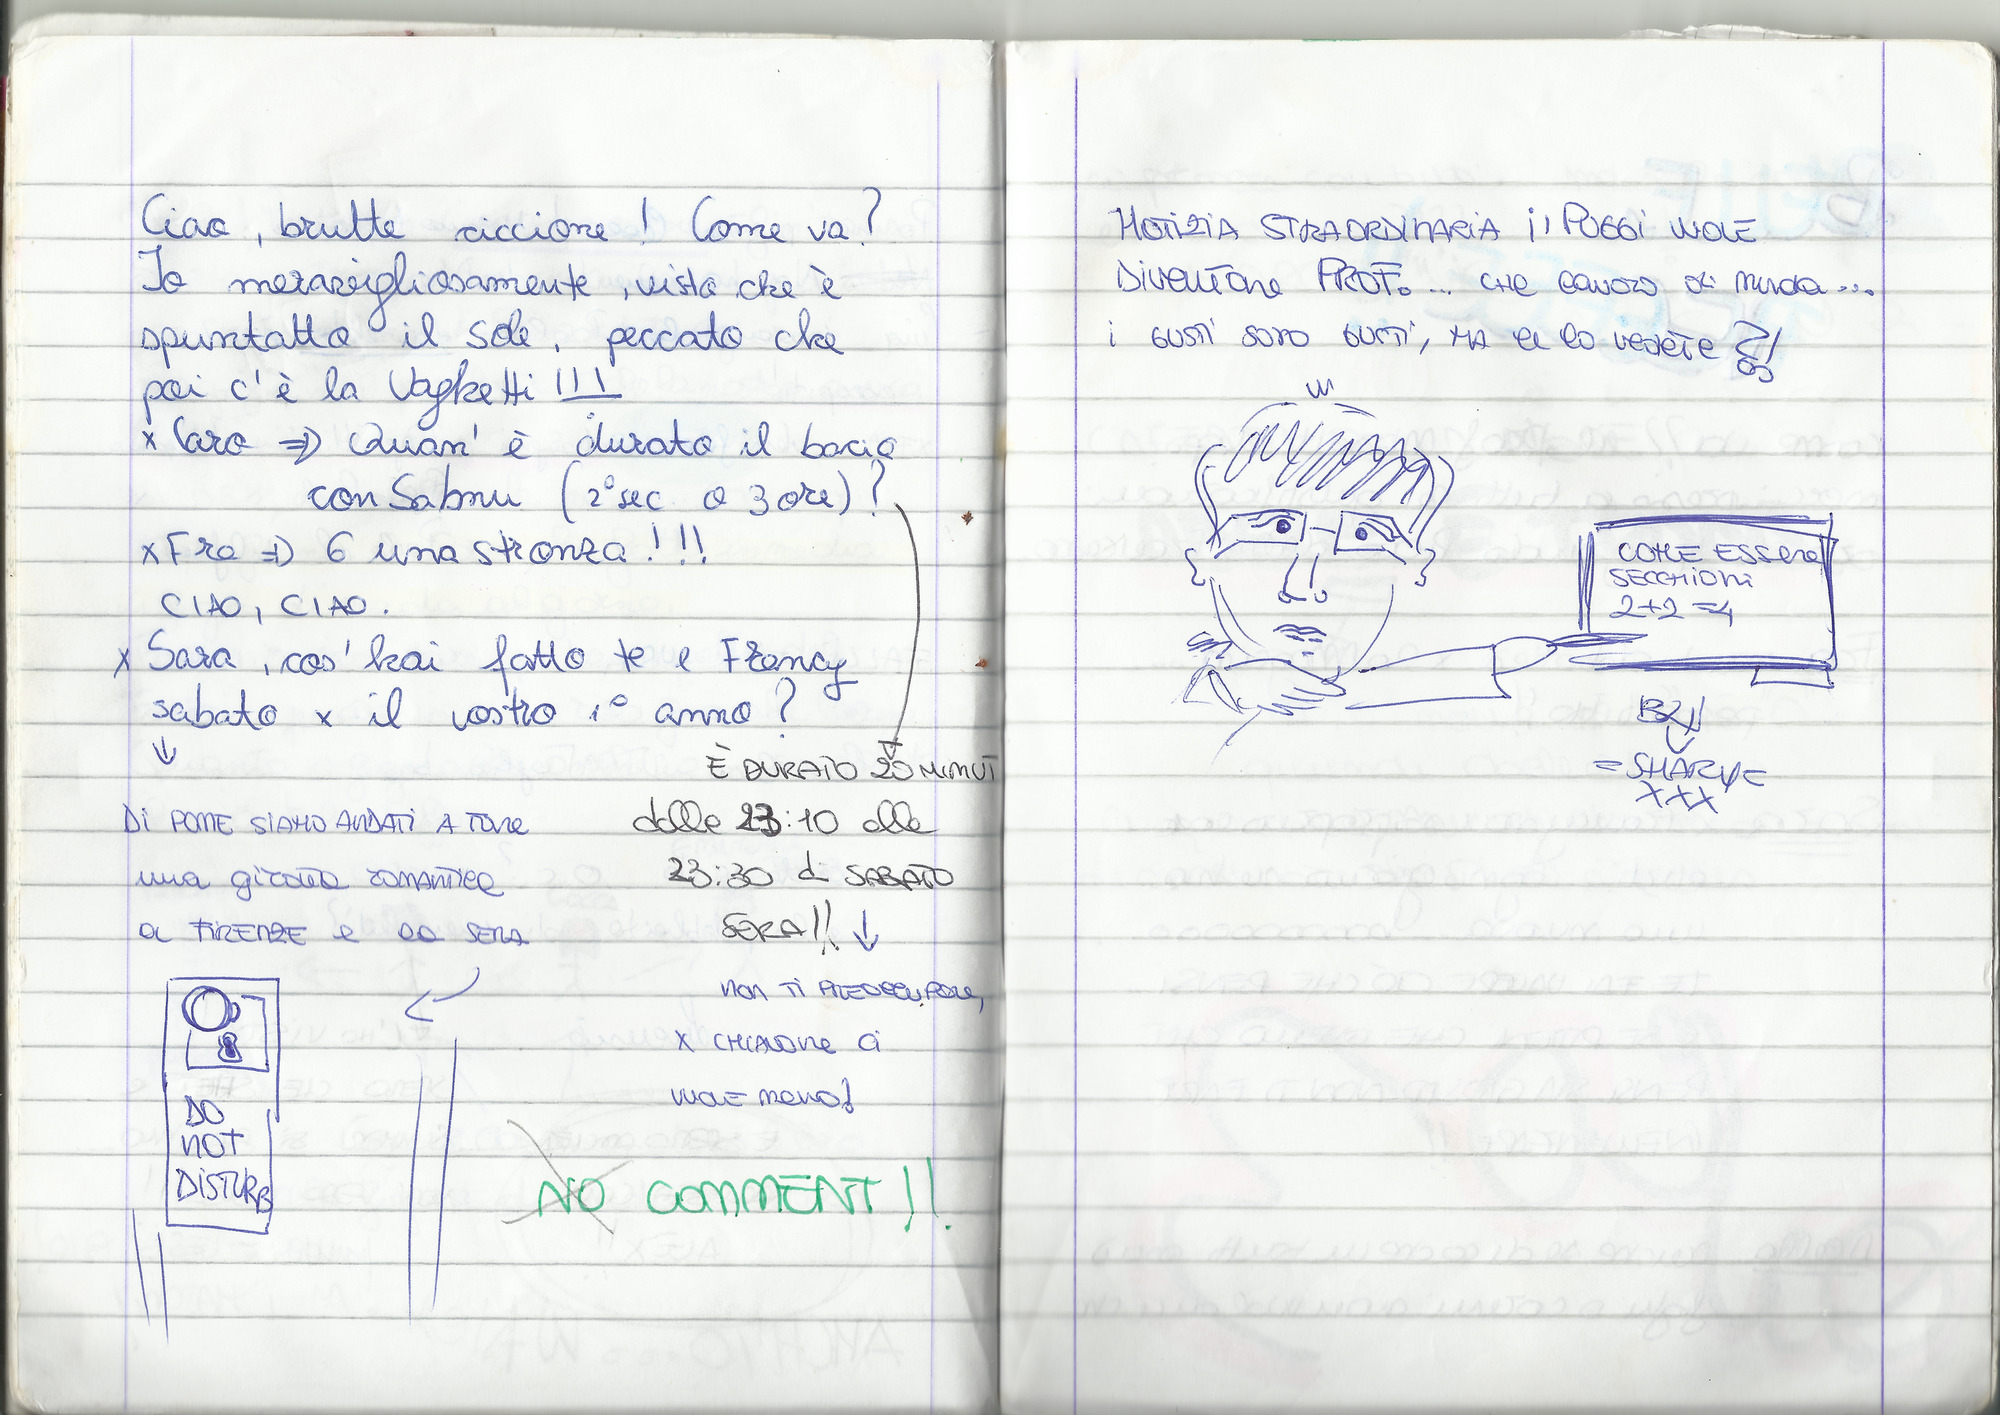 Ciao, brutte ciccione! Come va?
Io meravigliosamente, visto che è
spuntatto il sole, peccato che
poi c'è la Vaghetti!!!
x Caro => Quan' è durato il bacio
con Sabnu (2° sec o 3 ore)?
x Fra => 6 una stronza!!!
CIAO, CIAO.
x Sara, cos' hai fatto te e Francy
sabato x il vostro 1° anno?
È DURATO 20 MINUTI
dalle 23:10 alle
23:30 di SABATO
SERA!!
non ti PREOCCUPARE,
x CHIAVARE CI
VUOLE meno!
Di POME SIAMO ANDATI A FARE
una girata romantica
a FIRENZE e la SERA
DO
NOT
DISTURB
NO COMMENT!!
NOTIZIA STRAORDINARIA ¡! POGGI VUOLE
DIVENTARE PROF.... CHE lavoro di merda...
i GUSTI SONO GUSTI, MA ce lo vedete ?!
COME ESSERE
SECCHIONI
2+2=4
By
=SHARY=
XXX